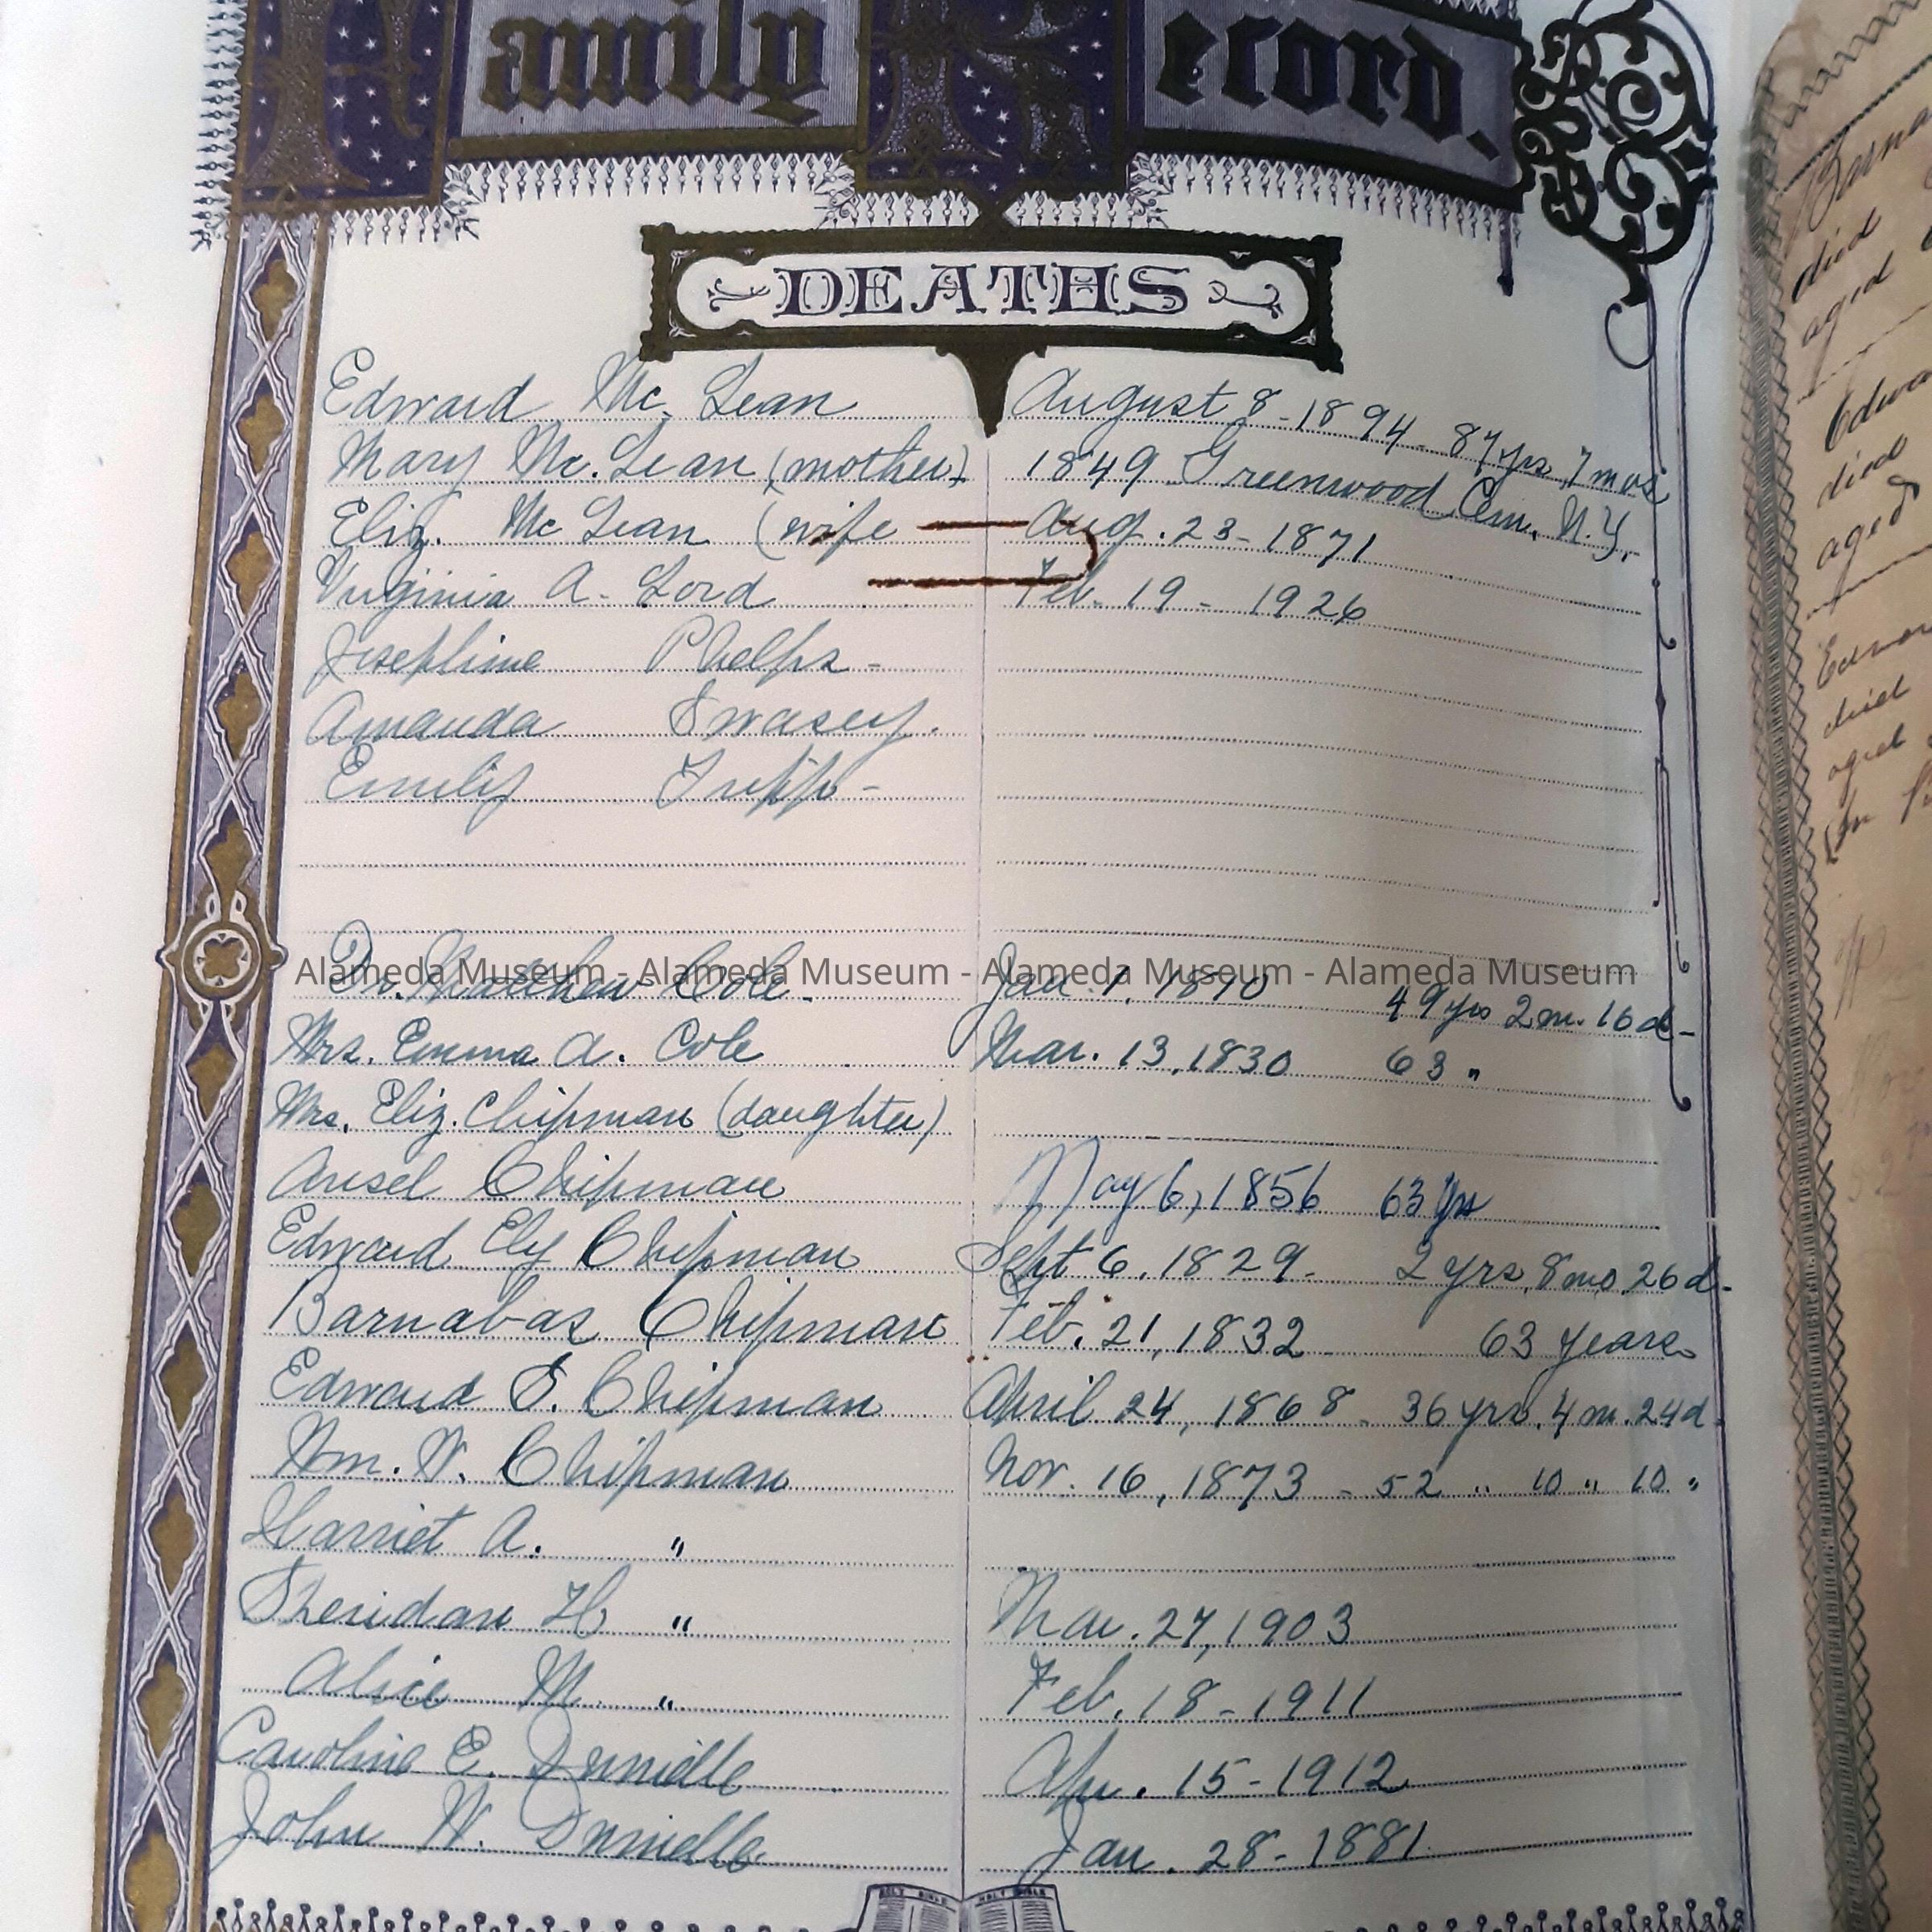 Family Record.
DEATHS
Edward Mc. Lean August 8-1894-87yrs 7mos
Mary Mc. Lean (mother) 1849 Greenwood Cem. N.Y.
Eliz. Mc Lean (wife Aug. 23-1871
Virginia A. Lord Feb. 19 - 1926
Josephine Phelps -
Amanda Swasey.
Emily Tripp -
Dr. Matthew Cole - Jan 1. 1810 49 yrs 2m. 16d-
Alameda Museum - Alameda Museum - Alameda Museum - Alameda Museum
Mrs. Emma A. Cole Mar. 13, 1830 63 "
Mrs. Eliz. Chipman (daughter)
Ansel Chipman May 6, 1856 63 yrs
Edward Ely Chipman Sept 6, 1829- 2 yrs 8mo 26d-
Barnabas Chipman Feb. 21, 1832 63 years
Edward E. Chipman April 24, 1868- 36 yrs. 4m. 24d.
Wm. W. Chipman Nov. 16, 1873 - 52 " 10 " 10 "
Harriet A. "
Sheridan H "
Mar. 27, 1903
Alice M. " Feb. 18-1911
Caroline E. Dwinelle Apr. 15-1912
John W. Dwinelle Jan. 28-1881
HOLY BIBLE HOLY BIBLE
died
aged
died
aged
died
aged